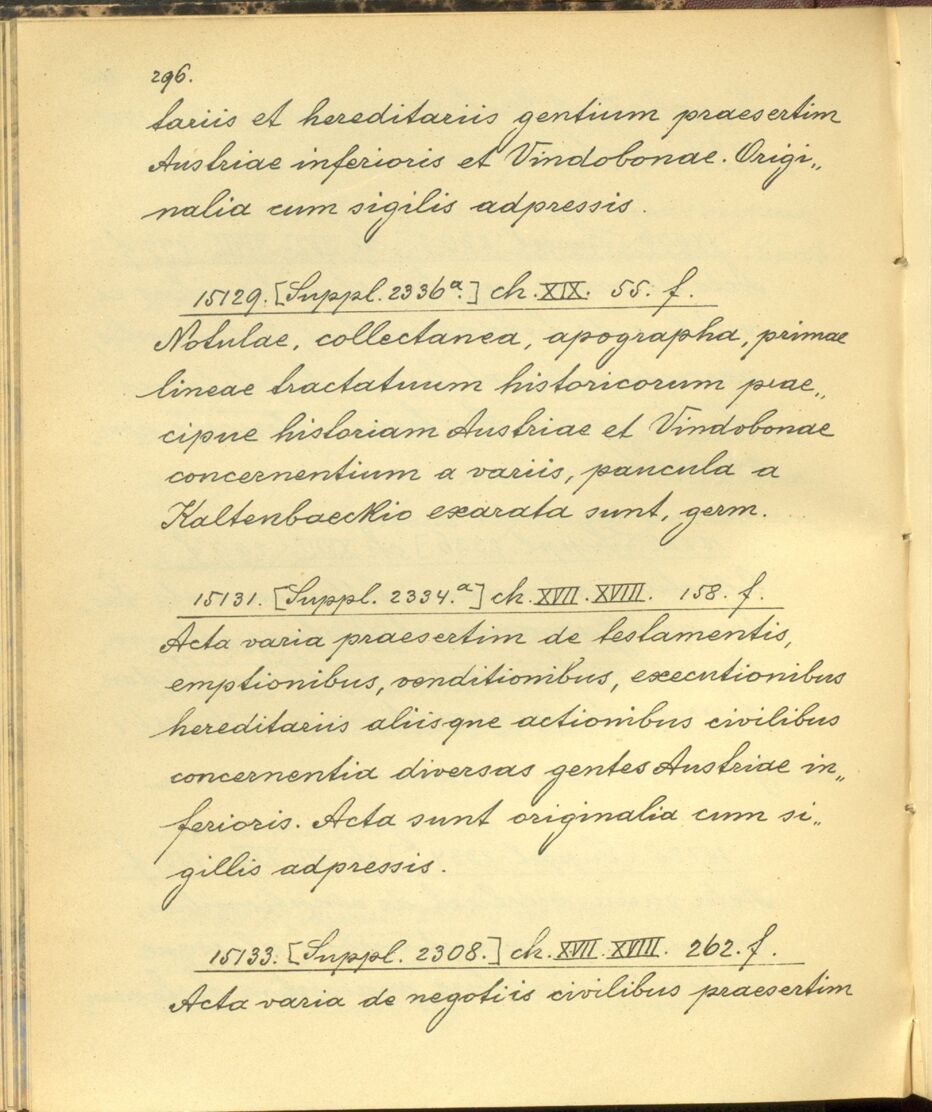 296.
tariis et hereditariis gentium praesertim
Austriae inferioris et Vindobonae. Origi„
nalia cum sigilis adpressis.
15129. [Suppl. 2336ª.] ch. XIX. 55. f.
Notulae, collectanea, apographa, primae
lineae tractatuum historicorum prae„
cipue historiam Austriae et Vindobonae
concernentium a variis, paucula a
Kaltenbaeckio exarata sunt, germ.
15131. [Suppl. 2334.ª] ch. XVII. XVIII. 158. f.
Acta varia praesertim de testamentis,
emptionibus, venditionibus, executionibus
hereditariis aliisque actionibus civilibus
concernentia diversas gentes Austriae in„
ferioris. Acta sunt originalia cum si„
gillis adpressis.
15133. [Suppl. 2308.] ch. XVII. XVIII. 262. f.
Acta varia de negotiis civilibus praesertim